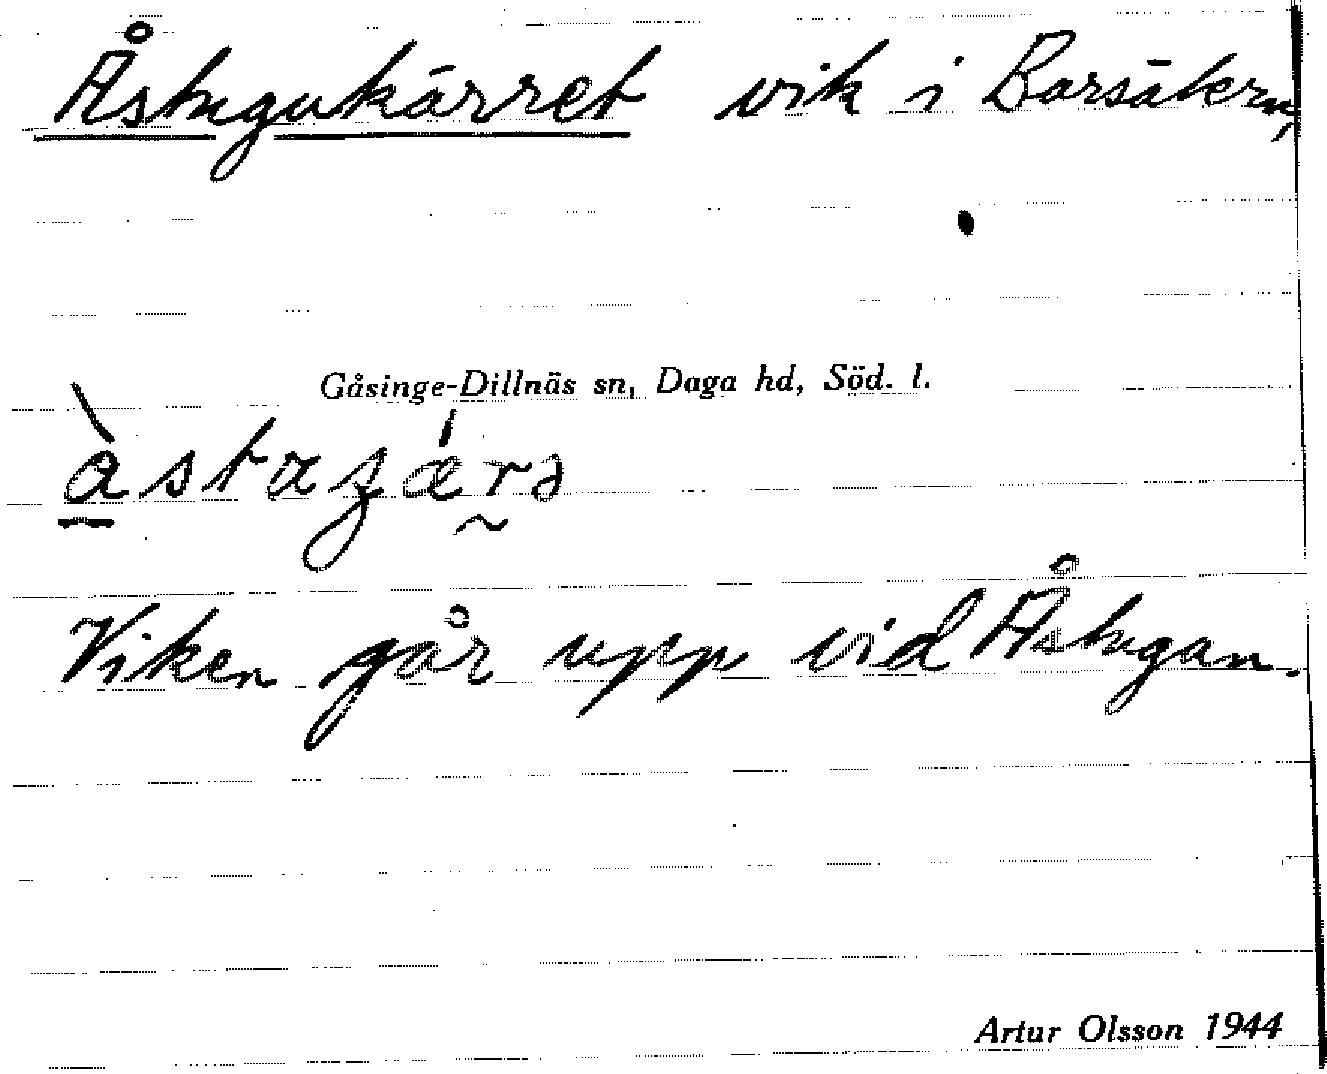 Åstugukärret vik i Borsäkern,
Gåsinge-Dillnäs sn, Daga hd, Söd. l.
Viken går upp vid Åstugan.
Artur Olsson 1944